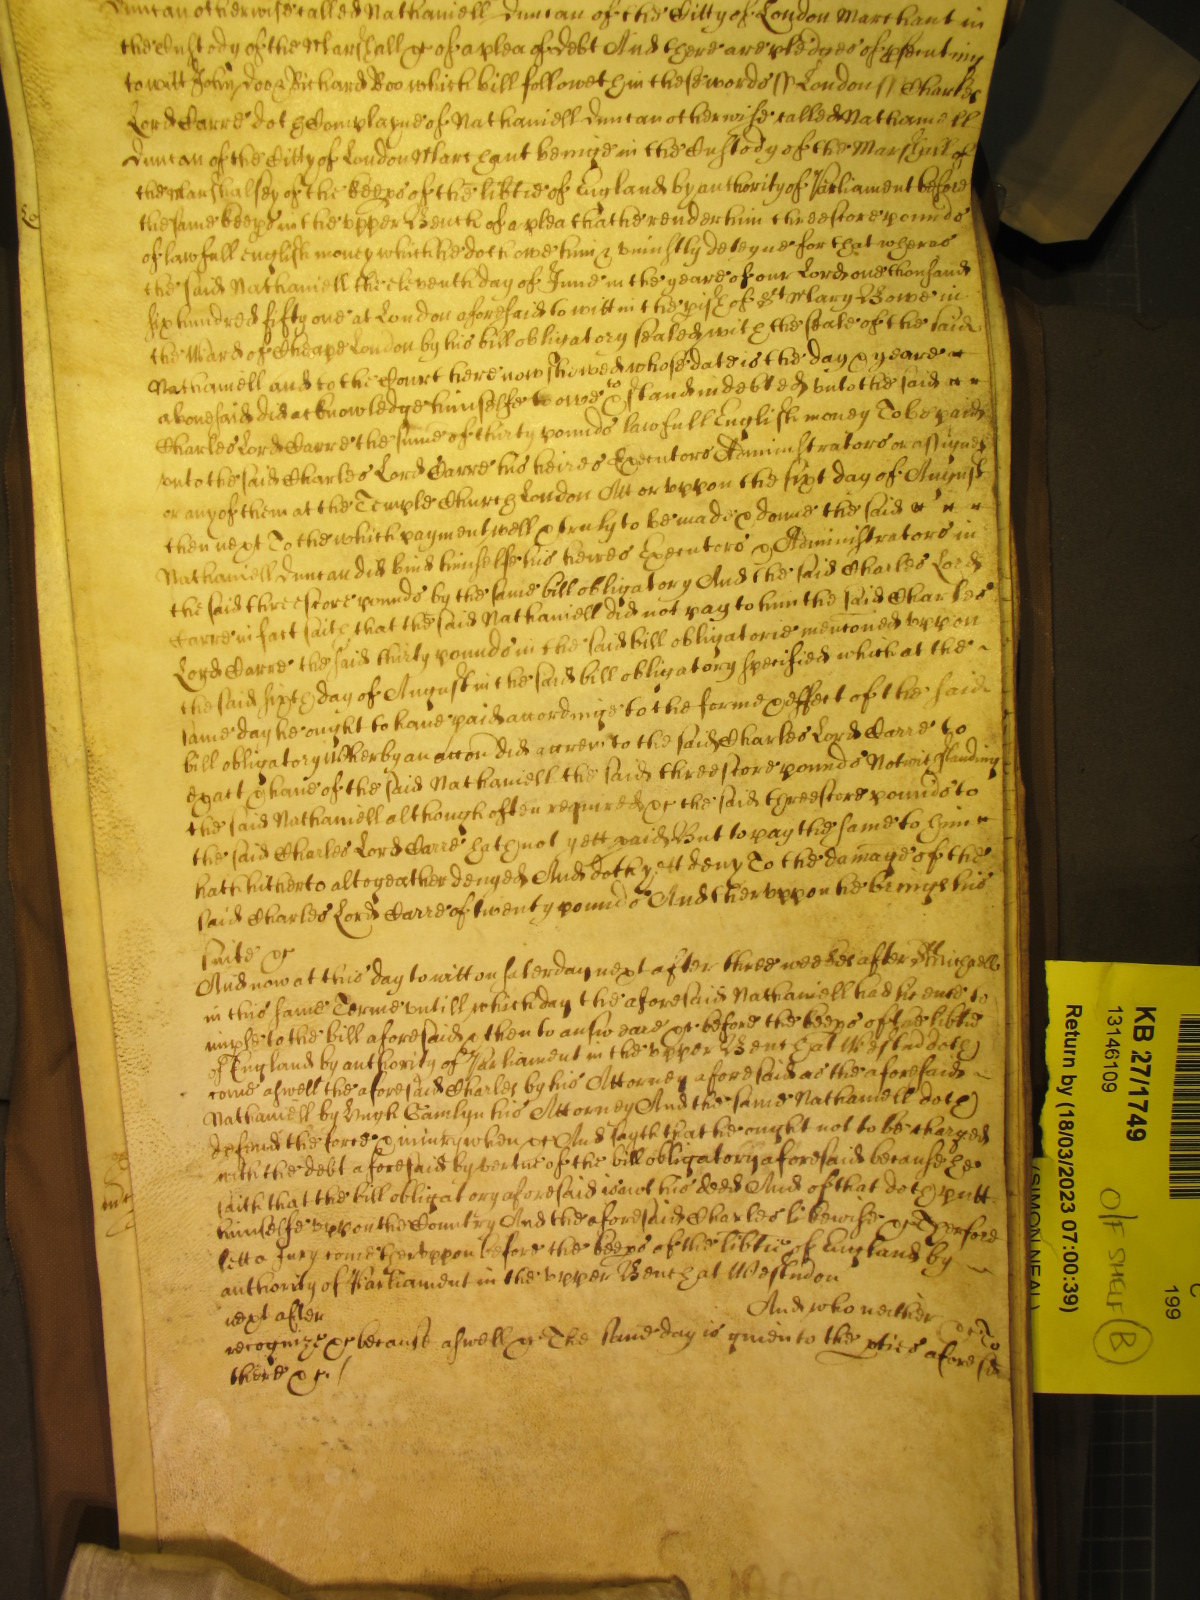 Duncan otherwise called Nathaniell Duncan of the Citty of London Marchant in
the Custody of the Marshall &c of a plea of debt And there are pledges of psecuting
to witt John Doo & Richard Roo which bill followeth in these words ss London ss Charles
Lord Carre doth Complayne of Nathaniell Duncan otherwise called Nathaniell
Duncan of the Citty of London Marchant beinge in the Custody of the Marshall of
the Marshalsey of the keeps of the libtie of England by authority of Parliament before
the same keeps in the Vpper Bench of a plea that he render him threescore pounds
of lawfull english money which he doth owe him & uniustly deteyne for that wheras
the said Nathaniell the eleventh day of June in the yeare of our Lord one thousand
six hundred fifty one at London aforesaid to witt in the pish of St Mary Bowe in
the Ward of Cheape London by his bill obligatory sealed with the seale of the said
Nathaniell and to the Court here now showed whose date is the day & yeare
abovesaid did acknowledge himselfe to owe & stand indebted unto the said
Charles Lord Carre the sume of thirty pounds lawfull English money To be paid
unto the said Charles Lord Carre his heires Executors Administrators or assignes
or any of them at the Temple Church London Att or uppon the sixt day of August
then next To the which payment well & truly to be made & donne the said
Nathaniell Duncan did bind himselfe his heires Executors & Administrators in
the said threescore pounds by the same bill obligatory And the said Charles Lord
Carre in fact saith that the said Nathaniell did not pay to him the said Charles
Lord Carre the said thirty pounds in the said bill obligatorie mentioned uppon
the said sixth day of August in the said bill obligatory specified which at the
same day he ought to have paid accordinge to the forme & effect of the said
bill obligatory Wherby an accon did accrew to the said Charles Lord Carre to
exact & have of the said Nathaniell the said threescore pounds Notwithstanding
the said Nathaniell although often required &c the said threescore pounds to
the said Charles Lord Carre hath not yett paid But to pay the same to him
hath hitherto altogeather denyed And doth yett deny To the damage of the
said Charles Lord Carre of twenty pounds And theruppon he brings his
suite &c
And now at this day to witt on saterday next after three weekes after St Michaell
in this same Terme untill which day the aforesaid Nathaniell had licence to
imple to the bill aforesaid & then to answeare &c before the keeps of the libtie
of England by authority of Parliament in the Vpper Bench at Westm doth
come aswell the aforesaid Charles by his Attorney aforesaid as the aforesaid
Nathaniell by Hugh his Attorney And the same Nathaniell doth
defend the force & iniury when &c And sayth that he ought not to be charged
with the debt aforesaid by vertue of the bill obligatory aforesaid because he
saith that the bill obligatory aforesaid is not his deed And of that doth putt
himselfe uppon the Country And the aforesaid Charles likewise &c Therfore
lett a Jury come theruppon before the keeps of the libtie of England by
authority of Parliament in the Vpper Bench at Westm on
next after And who neither &c To
recognize &c because aswell &c The same day is given to the pties aforesd
there &c
KB 27/1749
13146109
Return by (18/03/2023 07:00:39)
(SIMON NEAL)
O/F SHELF B
C
199